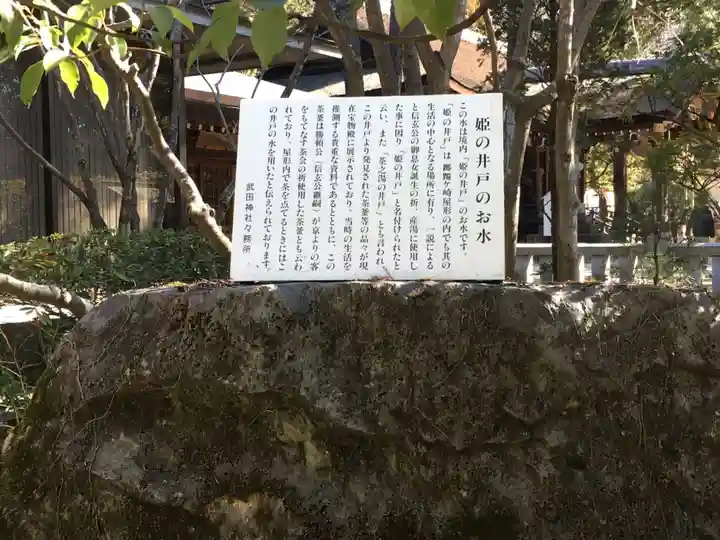 姫の井戸のお水
この水は境内「姫の井戸」のお水です。
「姫の井戸」は躑躅ケ崎屋形の内でも其の
生活の中心となる場所に有り、一説による
と信玄公の御息女誕生の祈、産湯に使用し
た事に因り「姫の井戸」と名付けられたと
云い、また「茶之湯の井戸」とも言われ
この井戸より発見された茶釜等の品々が現
在宝物殿に展示されており、当時の生活を
推測する貴重な資料であるとともに、この
茶釜は勝頼公（信玄公継嗣）が京よりの客
をもてなす茶会の折使用した茶釜とも云わ
れており、屋形内で茶を点てるときにはこ
の井戸の水を用いたと伝えられております。
武田神社々務所